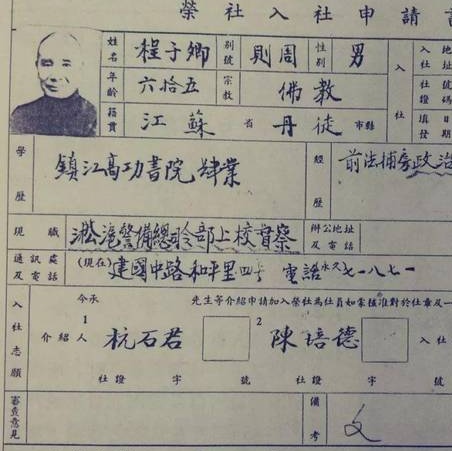 榮社入社申請
姓名 程子卿 別號 則周 性別 男
年齡 六拾五 宗教 佛教
籍貫 江蘇 省 丹徒 市縣
入社 入社 社證 填發 地址 號碼 日期
學歷 鎮江高功書院肄業 經歷 前法捕房政治
現職 淞滬警備總司令部上校督察 辦公地址及電話
通訊處及電話 (現在)建國中路和平里四號 電話永久七一八七一
入社志願 今承 先生等介紹申請加入榮社為社員如蒙核准對於社章及一
介紹人 1 杭石君 2 陳培德 入社
社證 字 號 社證 字 號
審查意見 備考